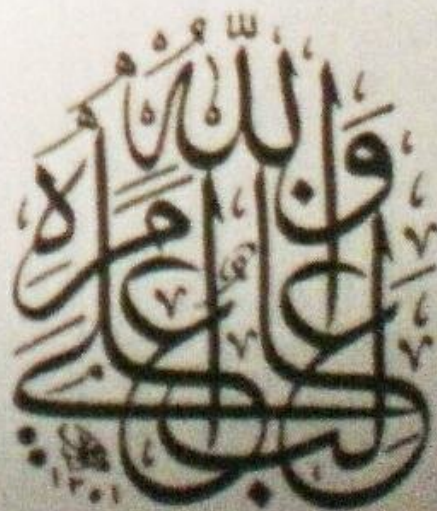 وَاللَّهُ غَالِبٌ عَلَىٰ أَمْرِهِ
١٣٥١